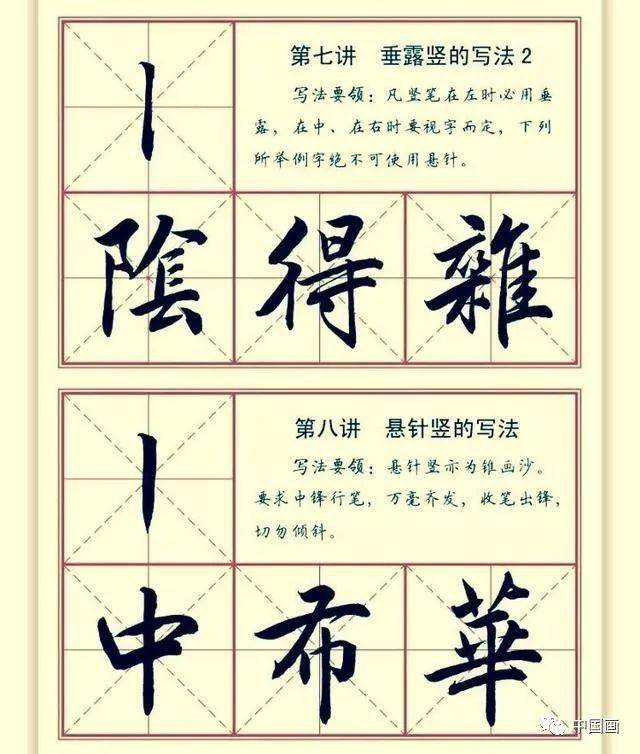 第七讲 垂露竖的写法2
写法要领：凡竖笔在左时必用垂
露，在中、在右时要视字而定，下列
所举例字绝不可使用悬针。
陰 得 雜
第八讲 悬针竖的写法
写法要领：悬针竖亦为锥画沙。
要求中锋行笔，万毫齐发，收笔出锋，
切勿倾斜。
中 布 華
中国画